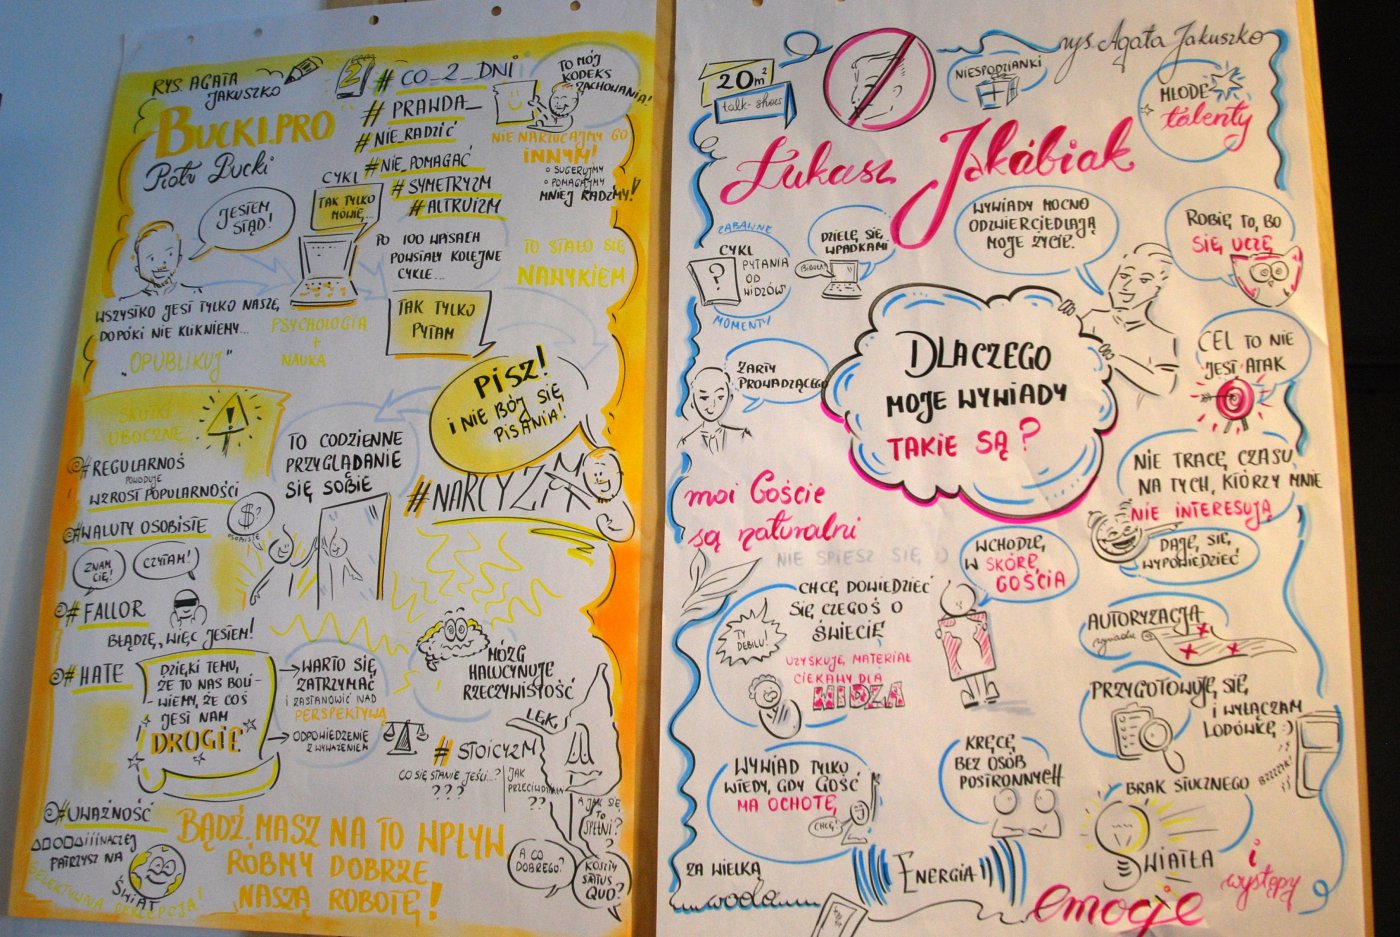 RYS. AGATA
JAKUSZKO
BUCKI.PRO
Piotr Bucki
# CO_2_DNI
# PRAWDA_
#NIE_RADZIĆ
#NIE_POMAGAĆ
# SYMETRYZM
# ALTRUIZM
TO MÓJ
KODEKS
ZACHOWANIA!
NIE NARZUCAJMY GO
INNYM!
SUGERUJMY
POMAGAJMY
MNIEJ RADŹMY!
JESTEM
STĄD!
CYKL
TAK TYLKO
MÓWIĘ...
PO 100 WPISACH
POWSTAŁY KOLEJNE
CYKLE...
TO STAŁO SIĘ
NAWYKIEM
WSZYSTKO JEST TYLKO NASZE,
DOPÓKI NIE KLIKNIEMY...
"OPUBLIKUJ"
PSYCHOLOGIA
+
NAUKA
TAK TYLKO
PYTAM
PISZ!
I NIE BÓJ SIĘ
PISANIA!
SKUTKI
UBOCZNE
#REGULARNOŚ
POWODUJE
WZROST POPULARNOŚCI
#WALUTY OSOBISTE
$?
OSOBISTE
ZNAM
CIĘ!
CZYTAM!
TO CODZIENNE
PRZYGLĄDANIE
SIĘ SOBIE
#NARCYZM
# FALLOR
BŁĄDZĘ, WIĘC JESTEM!
# HATE
DZIĘKI TEMU,
ŻE TO NAS BOLI -
WIEMY, ŻE COŚ
JEST NAM
DROGIE
WARTO SIĘ
ZATRZYMAĆ
I ZASTANOWIĆ NAD
PERSPEKTYWĄ
ODPOWIEDZENIE
Z WYWAŻENIEM
MÓZG
HALUCYNUJE
RZECZYWISTOŚĆ
LĘK
# STOICYZM
CO SIĘ STANIE JEŚLI...?
???
JAK
PRZECIWDZIAŁAĆ
??
A JAK SIĘ
TO
SPEŁNI?
?
A CO
DOBREGO?
KOSZTY
STATUS
QUO?
#UWAŻNOŚĆ
INACZEJ
PATRZYSZ NA
ŚWIAT
SELEKTYWNA PERCEPCJA!
BĄDŹ. MASZ NA TO WPŁYW
RÓBMY DOBRZE
NASZĄ ROBOTĘ!
20m²
talk-show
NIESPODZIANKI
rys. Agata Jakuszko
MŁODE
talenty
Łukasz Jakóbiak
ZABAWNE
CYKL
?
PYTANIA
OD
WIDZÓW
MOMENTY
DZIELĘ SIĘ
WPADKAMI
WYWIADY MOCNO
ODZWIERCIEDLAJĄ
MOJE ŻYCIE.
ROBIĘ TO, BO
SIĘ UCZĘ
ŻARTY
PROWADZĄCEGO
DLACZEGO
MOJE WYWIADY
TAKIE SĄ?
CEL TO NIE
JEST ATAK
NIE TRACĘ CZASU
NA TYCH, KTÓRZY MNIE
NIE INTERESUJĄ
moi Goście
są naturalni
NIE SPIESZ SIĘ :)
DAJĘ SIĘ
WYPOWIEDZIEĆ
WCHODZĘ
W SKÓRĘ
GOŚCIA
CHCĘ DOWIEDZIEĆ
SIĘ CZEGOŚ O
ŚWIECIE
TY
DEBILU!
UZYSKUJĘ MATERIAŁ
CIEKAWY DLA
WIDZA
AUTORYZACJA
wywiadu
PRZYGOTOWUJĘ SIĘ
I WYŁĄCZAM
LODÓWKĘ :)
BZZZYK!
WYWIAD TYLKO
WTEDY, GDY GOŚĆ
MA OCHOTĘ
CHCĘ!
KRĘCĘ
BEZ OSÓB
POSTRONNYCH
BRAK SZTUCZNEGO
ŚWIATŁA
ZA WIELKĄ
wodą
ENERGIA
emocje
i
występy